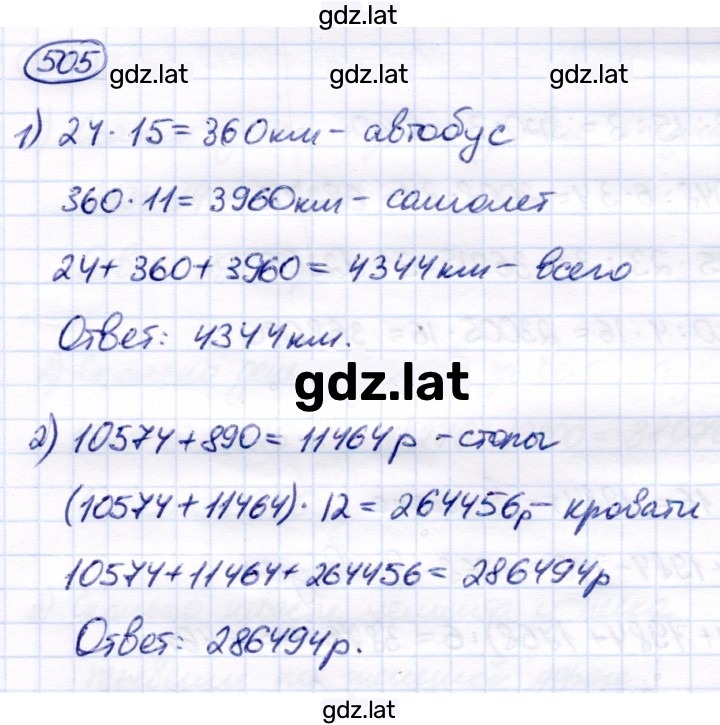 gdz.lat
505
gdz.lat gdz.lat gdz.lat
1) 24 · 15 = 360км - автобус
360 · 11 = 3960км - самолет
24 + 360 + 3960 = 4344км - всего
Ответ: 4344км.
gdz.lat
2) 10574 + 890 = 11464р - столы
(10574 + 11464) · 12 = 264456р - кровати
10574 + 11464 + 264456 = 286494р
Ответ: 286494р.
gdz.lat